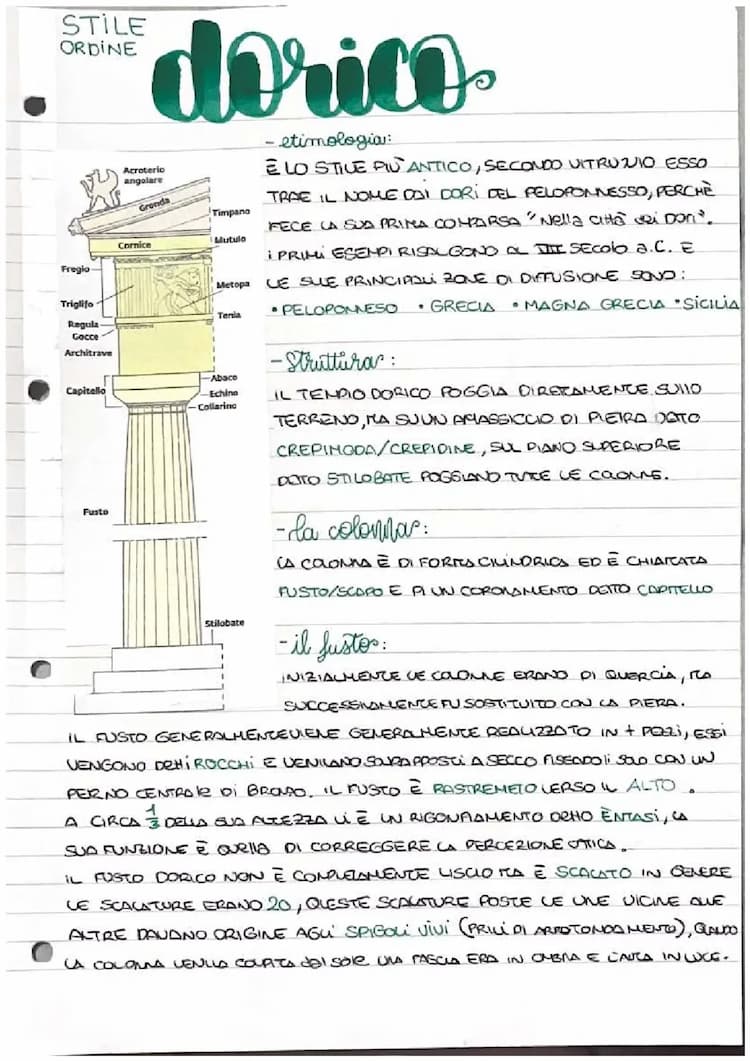 STILE
ORDINE
dorico
- etimologia:
È LO STILE PIÙ ANTICO, SECONDO VITRUVIO ESSO
TRAE IL NOME DAI DORI DEL PELOPONNESO, PERCHÈ
FECE LA SUA PRIMA COMPARSA "Nella città dei Dori".
i PRIMI ESEMPI RISALGONO AL VII SECOLO a.C. E
LE SUE PRINCIPALI ZONE DI DIFFUSIONE SONO:
• PELOPONNESO • GRECIA • MAGNA GRECIA • SICILIA
Acroterio
angolare
Gronda
Timpano
Cornice
Mutulo
Fregio
Metopa
Triglifo
Tenia
Regula
Gocce
Architrave
Abaco
Capitello
Echino
Collarino
Fusto
Stilobate
- Struttura:
IL TEMPIO DORICO POGGIA DIRETAMENTE SULLO
TERRENO, MA SU UN AMASSICCIO DI PIETRA DETO
CREPIMODA/CREPIDINE, SUL PIANO SUPERIORE
DETO STILOBATE POGGIANO TUTE LE COLONNE.
- la colonna:
LA COLONNA È DI FORMA CILINDRICA ED È CHIAMATA
FUSTO/SCAPO E DI UN CORONAMENTO DETTO CAPITELLO
- il fusto:
INIZIALMENTE LE COLONNE ERANO DI QUERCIA, MA
SUCCESSIVAMENTE FU SOSTITUITO CON LA PIERA.
IL FUSTO GENERALMENTE VIENE GENERALMENTE REALIZZATO IN + PEZZI, ESSI
VENGONO DETTI ROCCHI E VENIVANO SOVRAPPOSTI A SECCO FISSANDOLI SOLO CON UN
PERNO CENTRALE DI BRONZO. IL FUSTO È RASTREMETO VERSO IL ALTO.
A CIRCA 1/3 DELLA SUA ALTEZZA VI È UN RIGONFIAMENTO DETTO ÈNTASI, LA
SUA FUNZIONE È QUELLA DI CORREGGERE LA PERCEZIONE OTTICA.
IL FUSTO DORICO NON È COMPLETAMENTE LISCIO MA È SCALATO IN GENERE
LE SCALATURE ERANO 20, QUESTE SCALATURE POSTE LE UNE VICINE ALLE
ALTRE DAVANO ORIGINE AGLI SPIGOLI VIVI (PRIVI DI ARROTONDAMENTO), QUANDO
LA COLONNA VENIVA COLPITA dal SOLE UNA FASCIA ERA IN OMBRA E L'ALTRA IN LUCE.